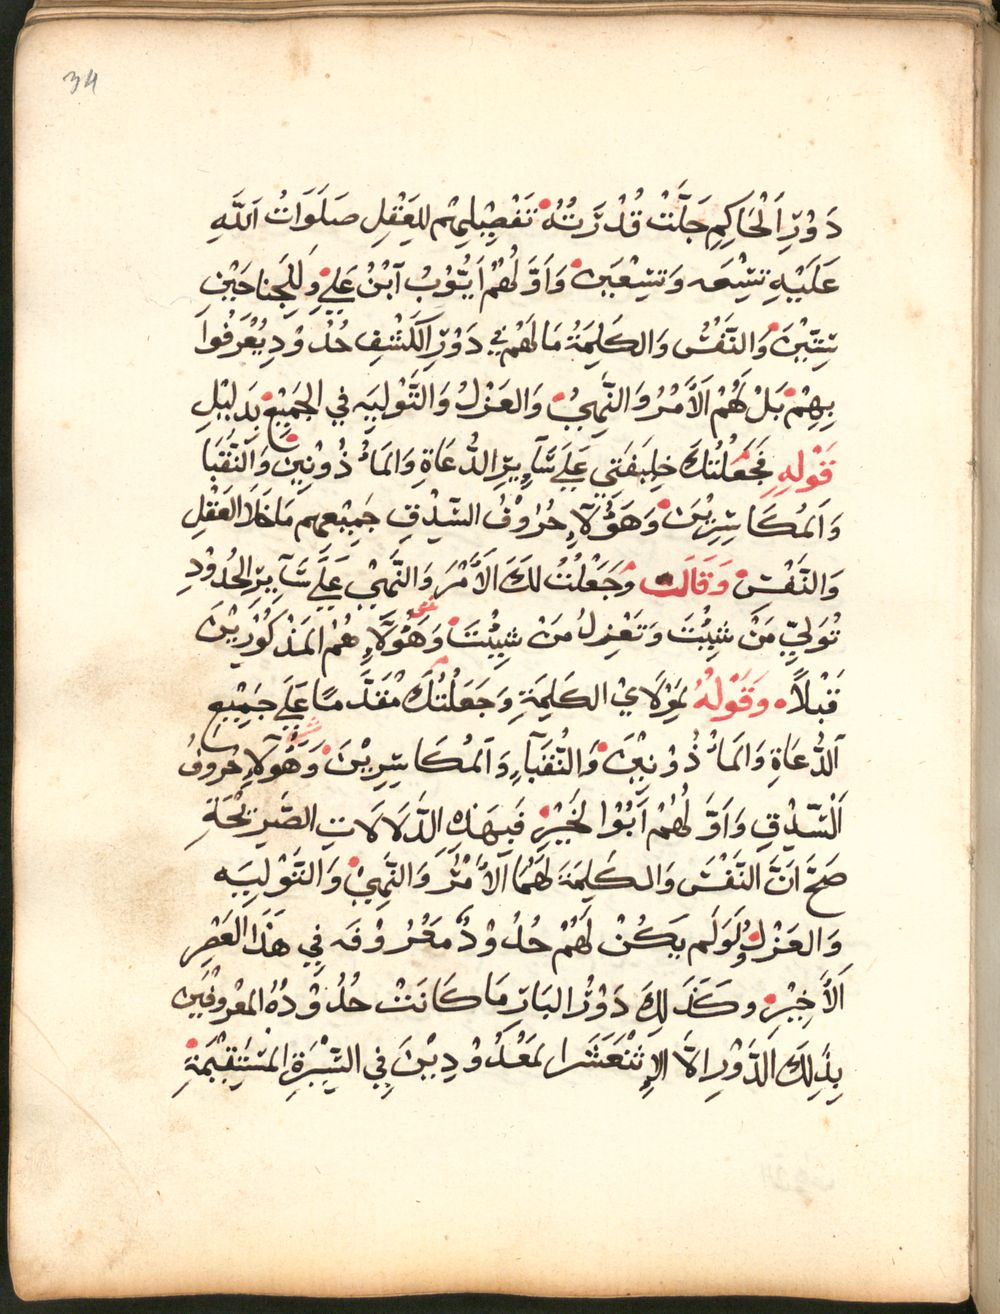 34
دَوْرِ اَلْحَاكِمِ جَلَّتْ قُدْرَتُهُ تَفْصِيْلِهِم لِلعَقْلِ صَلَوَاتُ اَللّٰهِ
عَلَيْهِ تِسْعَه وَتِسْعَيْنَ وَاَوَّلُهُمْ اَيُّوْبُ اَبْنُ عَلِي وَلِلجَناحَيْنِ
سِتِّيْنَ وَالنَّفْسُ وَالكَلِمَةُ مَا لَهُمْ فِي دَوْرِ اَلكَشْفِ حُدُوْدِ يُعْرَفُوا
بِهِمْ بَلْ لَهُمْ اَلاَمْرُ وَالنَّهِيُ وَالعَزْلُ وَالتَّوْلِيَه فِي الجَمِيْعِ بِدَلِيْلِ
قَوْلِهِ فَجَعَلْتُكَ خَلِيْفَتِي عَلَى سَآيِرِ الدُّعَاةِ وَالمَأْذُوْنِيْنَ وَالنُّقَبَا
وَالمُكَاسِرِيْنَ وَهَؤُلآءِ حُرُوْفُ السِّدْقِ جَمِيْعِهِم مَا خَلَا العَقْلِ
وَالنَّفْسِ وَقَالَت وَجَعَلْتُ لَكَ الاَمْرَ وَالنَّهِيْ عَلَى سَآيِرِ الحُدُوْدِ
تُوَلِّي مَنْ شِيْتَ وَتَعْزِلُ مَنْ شِيْتَ وَهَوُلَآءِ هُمْ المَذْكُوْرِيْنَ
قَبْلاً وَقَوْلُهُ لِمَوْلَايْ الكَلِمَةِ وَجَعَلْتُكَ مُقَدَّمًا عَلَى جَمِيْعِ
اَلدُّعَاةِ وَالمَأْذُوْنِيْنَ وَالنُّقَبَآءِ وَالمُكَاسِرِيْنَ وَهَؤُلآءِ حُرُوْفُ
اَلْسِّدْقِ وَاَوَّلُهُمْ اَبُوْا لْخَيْرِ فَبِهَذِهِ الدَّلَالَاتِ الصَّرِيْحَةِ
صَحَّ اَنَّ النَّفْسَ وَالكَلِمَةَ لَهُمَا اَلاَمْرُ وَالنَّهِيْ وَالتَّوْلِيَه
وَالعَزْلُ وَلَوْلَم يَكُنْ لَهُمْ حُدُوْدٌ مَعْرُوْفَه فِي هَذَا العَصْرِ
اَلاَخِيْرِ وَكَذَلِكَ دَوْرُ البَارِ مَا كَانَتْ حُدُوْدُهُ المَعْرُوْفِيْنَ
بِذَلِكَ اَلدَّوْرِ اِلَّا الاِثْنَعَشَرا لمَعْدُوْدِيْنَ فِي السِّيْرَةِ المُسْتَقِيْمَةِ